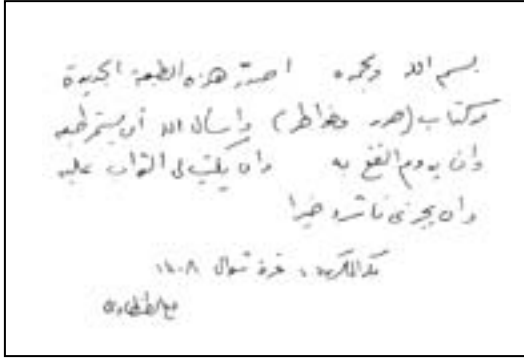 بسم الله وبحمده أصدر هذه الطبعة الجديدة
من كتاب (صور وخواطر) وأسأل الله أن يستمر طبعه
وأن يدوم النفع به وأن يكتب لي الثواب عليه
وأن يجزي ناشره خيرا
مكة المكرمة، غرة شوال ١٤٠٨
علي الطنطاوي